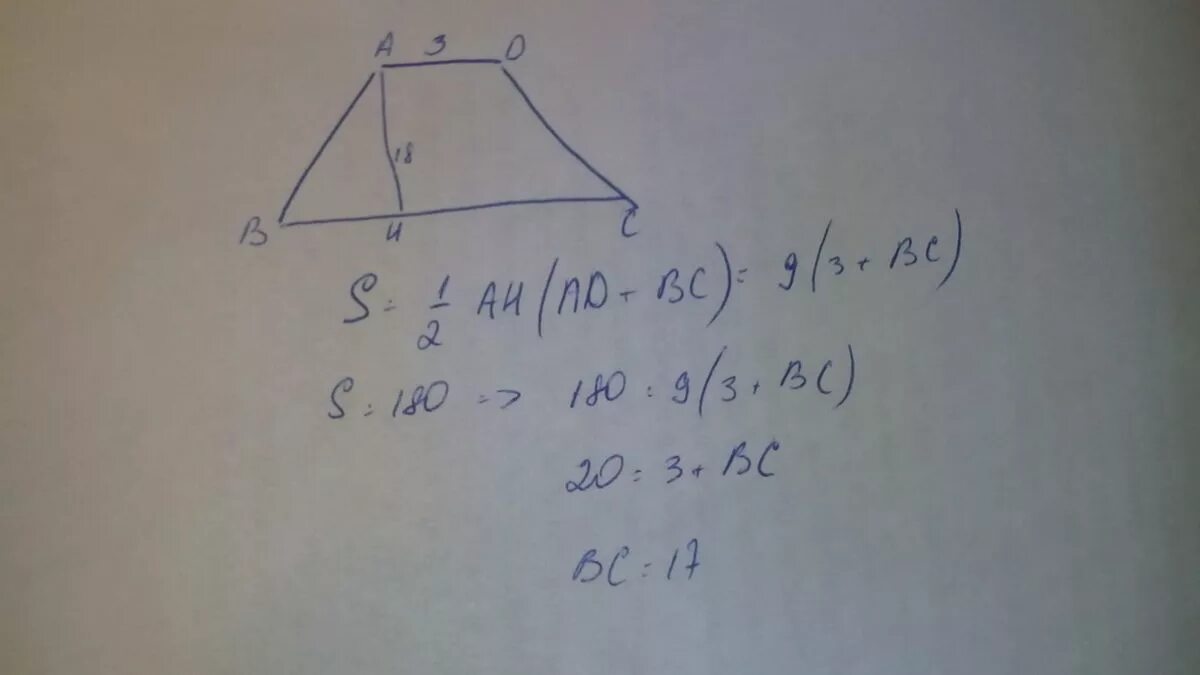 A 3 D
18
B H C
S = 1/2 AH (AD + BC) = 9(3 + BC)
S = 180 => 180 = 9(3 + BC)
20 = 3 + BC
BC = 17